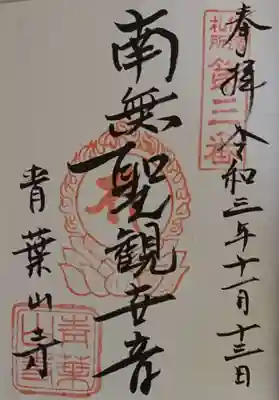 奉拝 令和三年十一月十三日
第三番
南無聖観世音
青葉山寺